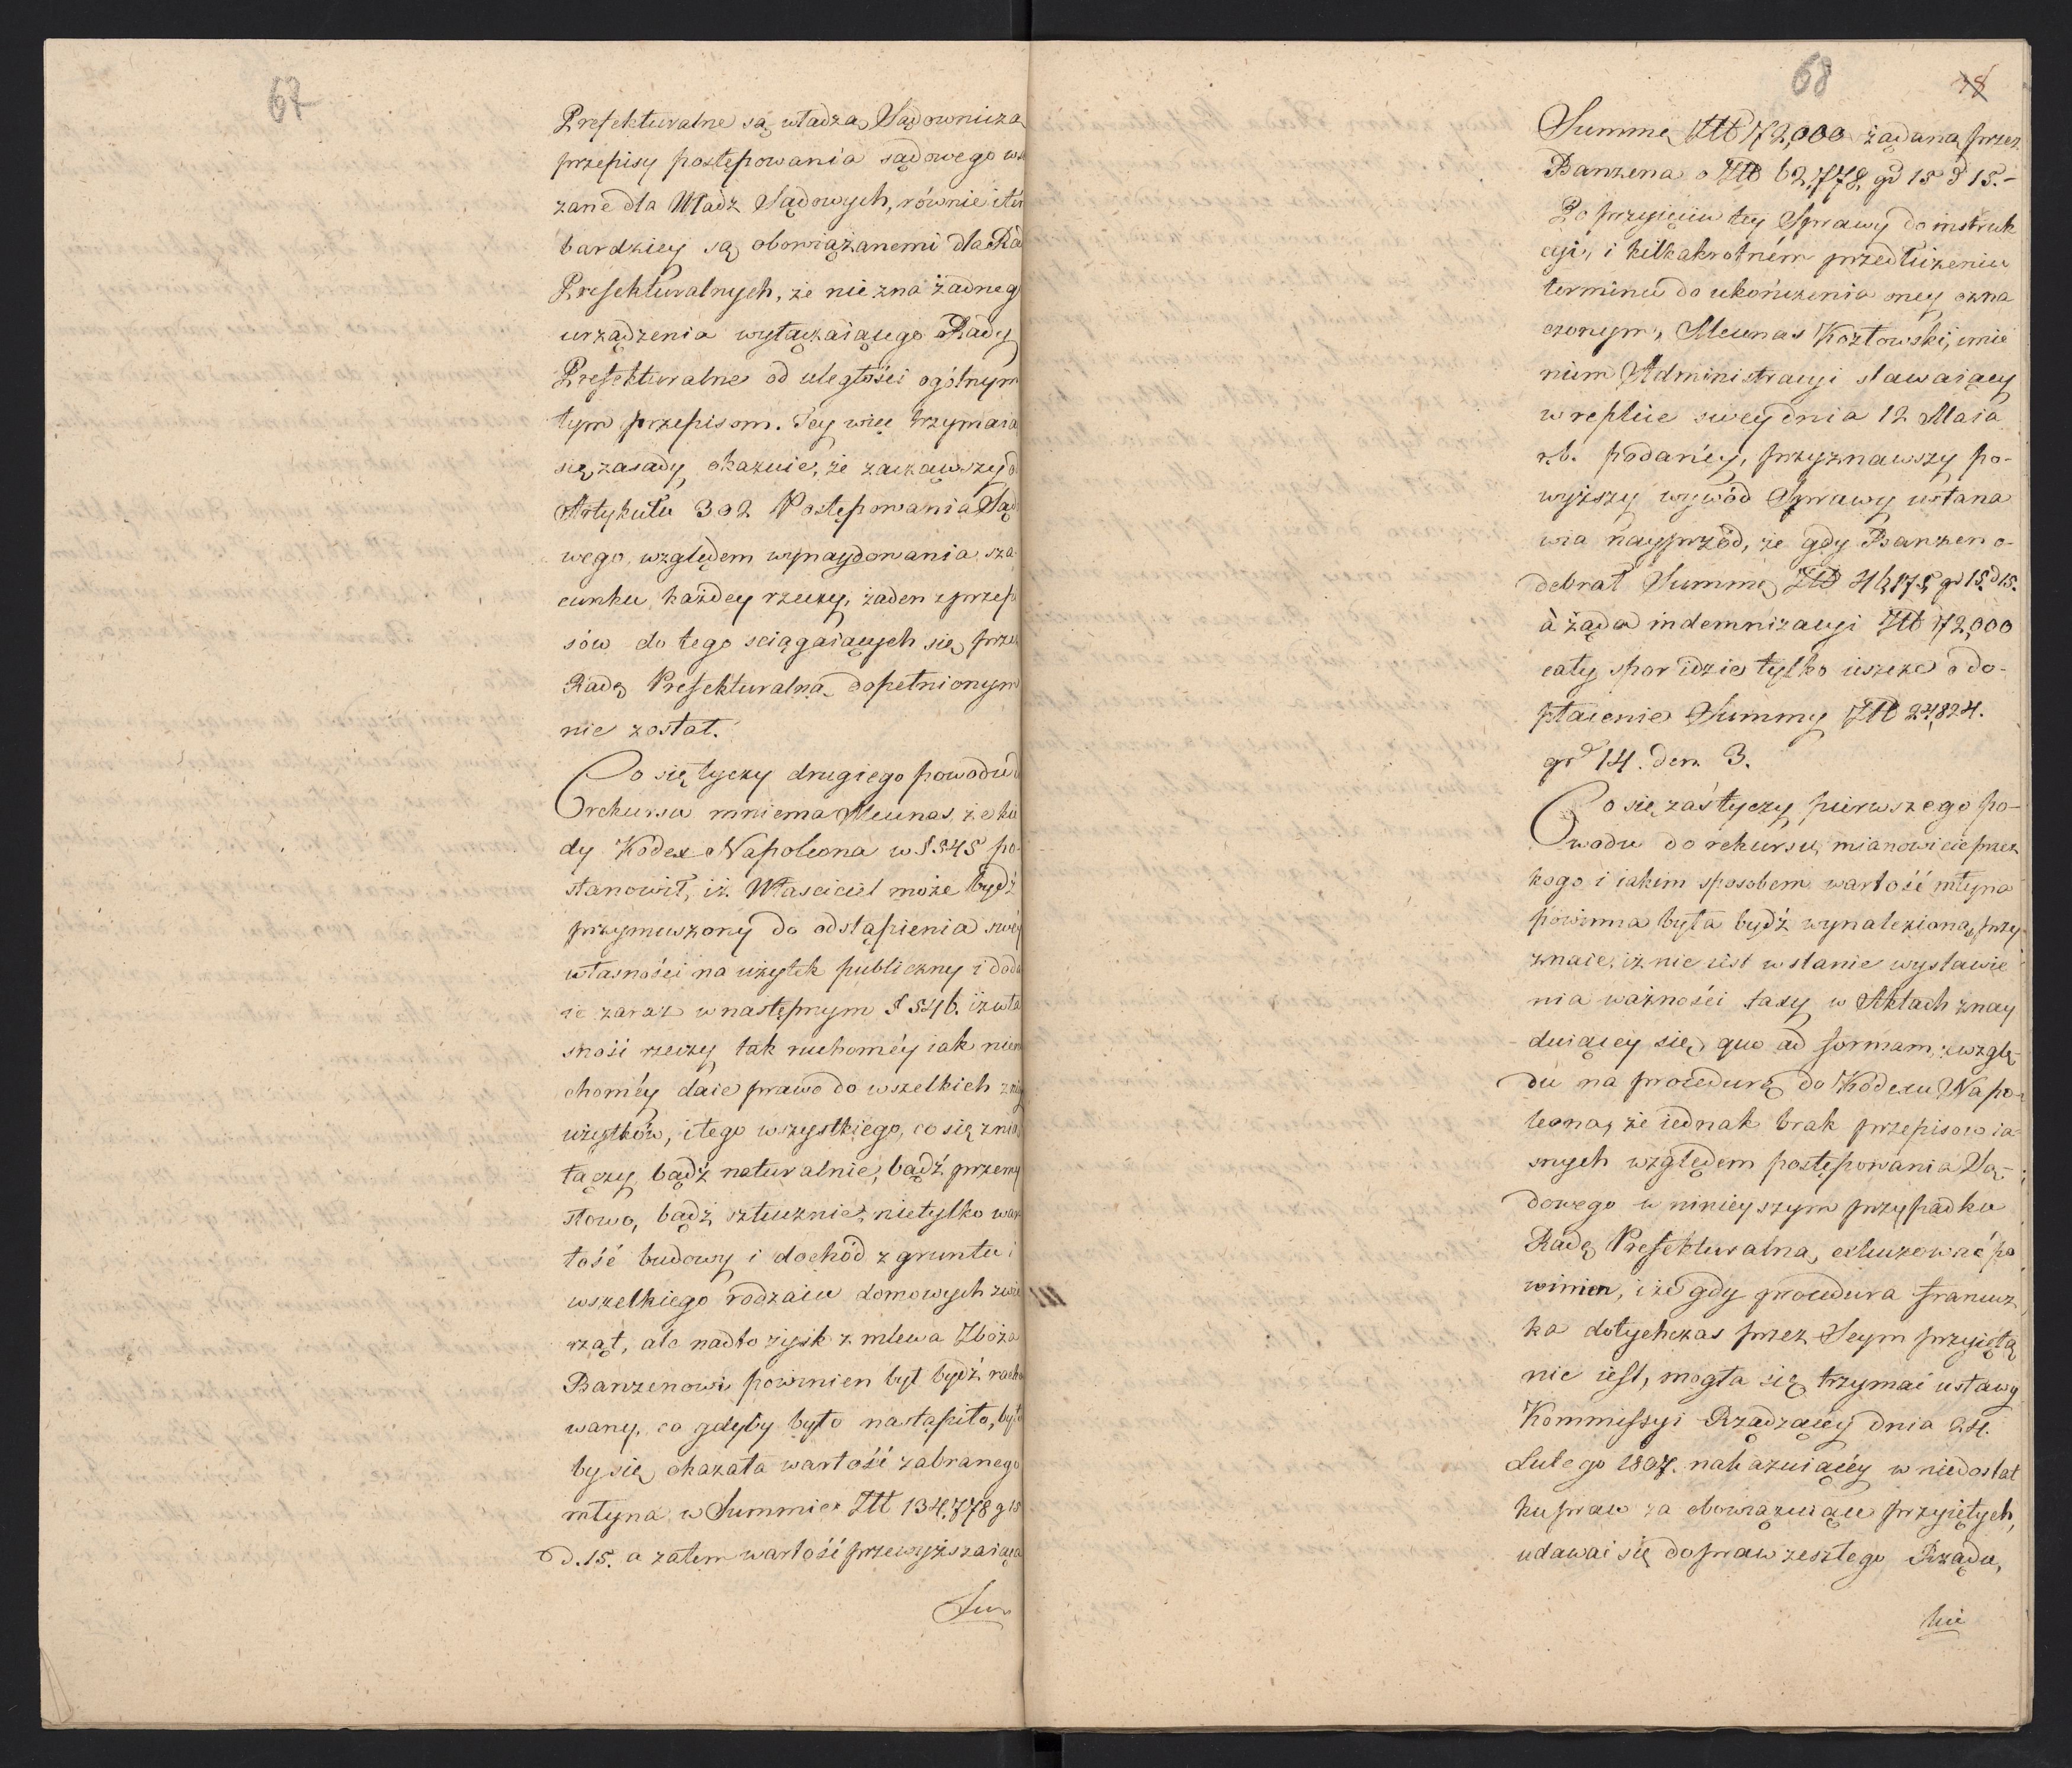 67
Prefekturalne są władzą Sądowniczą
przepisy postępowania sądowego
zane dla Władz Sądowych, równie i
bardziey są obowiązanemi dla Rad
Prefekturalnych, że nie zna żadneg
urządzenia wyłączaiącego Rady
Prefekturalne od uległości ogólnym
tym przepisom. Tey więc trzymaiąc
się zasady, okazuie, że zacząwszy od
Artykułu 302 Postępowania Sądo
wego, względem wynaydowania sza
cunku każdey rzeczy, żaden z przepi
sów do tego sciągaiących się, przez
Radę Prefekturalną dopełnionym
nie został.
Co się tyczy drugiego powodu do
rekursu mniema Mecenas, że kie
dy Kodex Napoleona w § 545 po
stanowił, iż Właściciel może bydź
przymuszony do odstąpienia swéy
własności na użytek publiczny i doda
ie zaraz w następnym § 546. iż wła
sność rzeczy tak ruchoméy iak nieru
choméy daie prawo do wszelkich z niéy
użytków, i tego wszystkiego, co się z nią
łączy, bądź naturalnie, bądź przemy
słowo, bądź sztucznie, nietylko war
tość budowy i dochód z gruntu i
wszelkiego rodzaiu domowych zwie
rząt, ale nadto zysk z mlewa Zboża
Banzenowi powinien był bydź racho
wany, co gdyby było nastąpiło, było
by się okazała wartość zabranego
młyna w Summie Złt 134,778 g 15
d. 15. a zatem wartość przewyższaiąca
Sum
68
78
Summę Złt 72,000 żądaną przez
Banzena o Złt 62,778, gr 15 d 15.-
Po przyięciu tey Sprawy do instruk
cyi, i kilkakrotném przedłużeniu
terminu do ukończenia oney ozna
czonym, Mecenas Kozłowski, imie
niem Administracyi stawaiący
w replice swey dnia 12 Maia
r. b. podanéy, przyznawszy po-
wyższy wywód Sprawy ustana
wia nayprzód, że gdy Banzen o-
debrał Summę Złt 47,175 gr 15. d 15.
à żąda indemnizacyi Złt 72,000
cały spor idzie tylko ieszcze o do-
płacenie Summy Złt 24,824.
gr 14. den. 3.
Co się zaś tyczy pierwszego po-
wodu do rekursu, mianowicie przez
kogo i iakim sposobem wartość młyna
powinna była bydź wynalezioną, przy-
znaie, iż nie iest w stanie wystawie
nia ważności taxy w Aktach znay
duiącey się, quo ad formam, zwzglę-
du na procedurę do Kodexu Napo-
leona, że iednak brak przepisow ia-
snych względem postępowania Są-
dowego w ninieyszym przypadku
Radę Prefekturalną, exkuzować po
winien, i że gdy procedura francuz
ka dotychczas przez Seym przyiętą
nie iest, mogła się trzymać ustawy
Kommissyi Rządzącéy dnia 24.
Lutego 1807. nakazuiącéy w niedostat
ku praw za obowiązuiące przyiętych,
udawać się do praw zeszłego Rządu,
kie